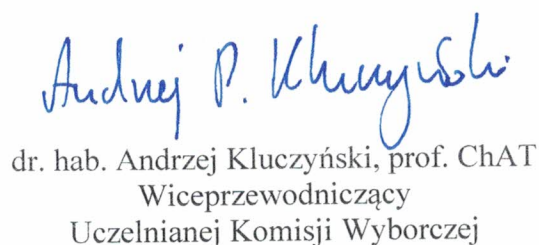 Andrzej P. Kluczyński
dr. hab. Andrzej Kluczyński, prof. ChAT
Wiceprzewodniczący
Uczelnianej Komisji Wyborczej